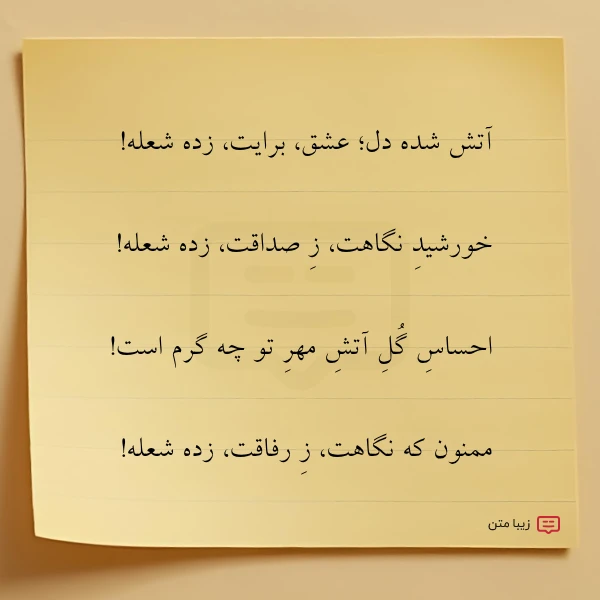 آتش شده دل؛ عشق، برایت، زده شعله!
خورشیدِ نگاهت، زِ صداقت، زده شعله!
احساسِ گُلِ آتشِ مهرِ تو چه گرم است!
ممنون که نگاهت، زِ رفاقت، زده شعله!
زیبا متن